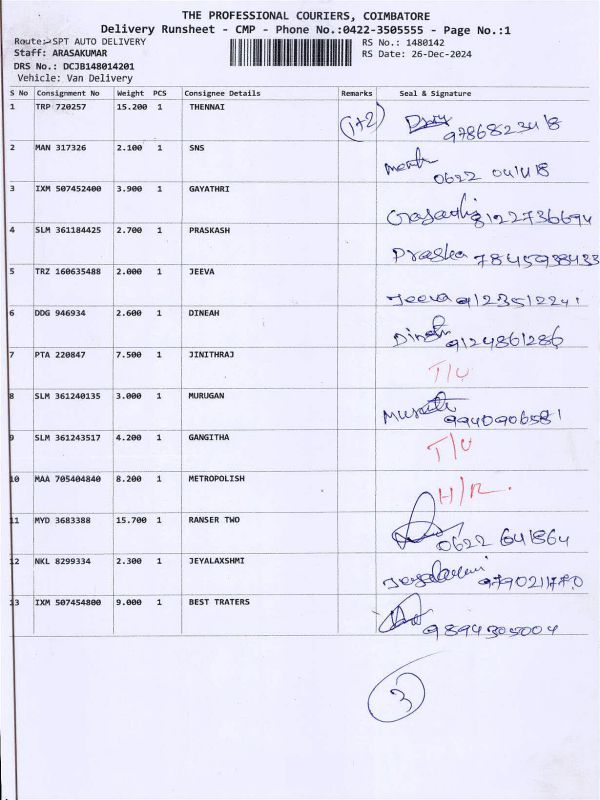 THE PROFESSIONAL COURIERS, COIMBATORE
Delivery Runsheet - CMP - Phone No.:0422-3505555 - Page No.:1
Route:-SPT AUTO DELIVERY RS No.: 1480142
Staff: ARASAKUMAR RS Date: 26-Dec-2024
DRS No.: DCJB148014201
Vehicle: Van Delivery
S No Consignment No Weight PCS Consignee Details Remarks Seal & Signature
1 TRP 720257 15.200 1 THENNAI 1+2
2 MAN 317326 2.100 1 SNS
3 IXM 507452400 3.900 1 GAYATHRI 8122736694
4 SLM 361184425 2.700 1 PRASKASH Praska 7845938433
5 TRZ 160635488 2.000 1 JEEVA Jeeva 9123512241
6 DDG 946934 2.600 1 DINEAH Dinesh 9124861286
7 PTA 220847 7.500 1 JINITHRAJ T/U
8 SLM 361240135 3.000 1 MURUGAN 9940906581
9 SLM 361243517 4.200 1 GANGITHA T/U
10 MAA 705404840 8.200 1 METROPOLISH H/R.
11 MYD 3683388 15.700 1 RANSER TWO 0622 641864
12 NKL 8299334 2.300 1 JEYALAXSHMI 9790211770
13 IXM 507454800 9.000 1 BEST TRATERS 9894305004
3